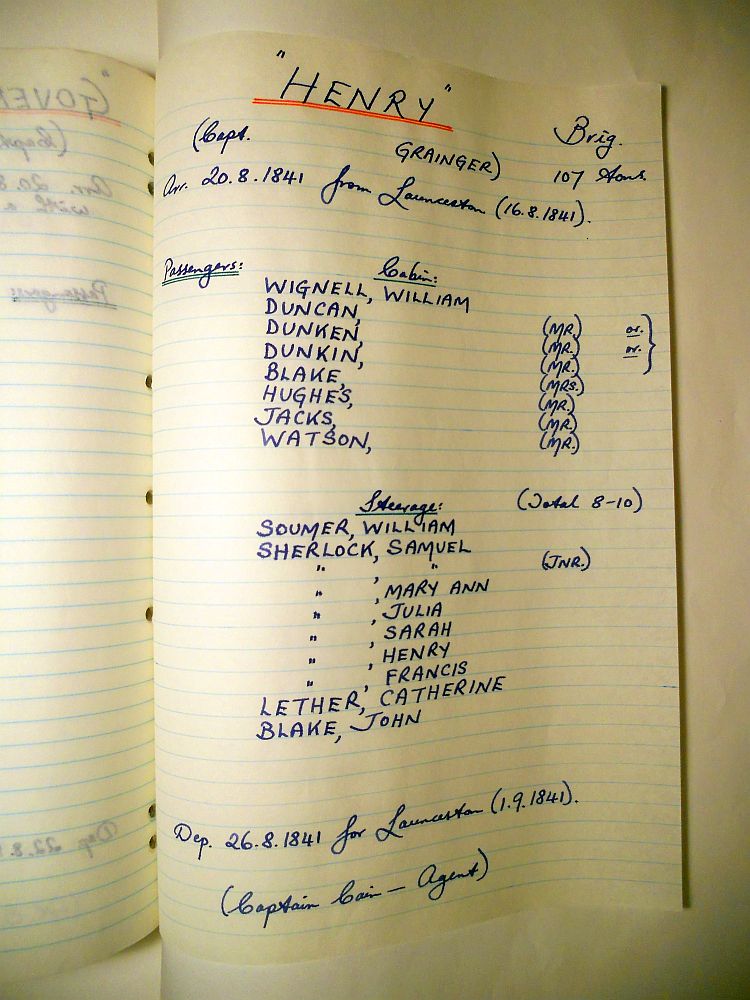 "HENRY"
(Capt. GRAINGER) Brig.
Arr. 20.8.1841 from Launceston (16.8.1841). 107 tons
Passengers: Cabin:
WIGNELL, WILLIAM
DUNCAN, (MR.) or.
DUNKEN, (MR.) or.
DUNKIN, (MR.)
BLAKE, (MRS.)
HUGHES, (MR.)
JACKS, (MR.)
WATSON, (MR.)
Steerage: (Total 8-10)
SOUMER, WILLIAM
SHERLOCK, SAMUEL
" , " (JNR.)
" , MARY ANN
" , JULIA
" , SARAH
" , HENRY
" , FRANCIS
LETHER, CATHERINE
BLAKE, JOHN
Dep. 26.8.1841 for Launceston (1.9.1841).
(Captain Cain - Agent)